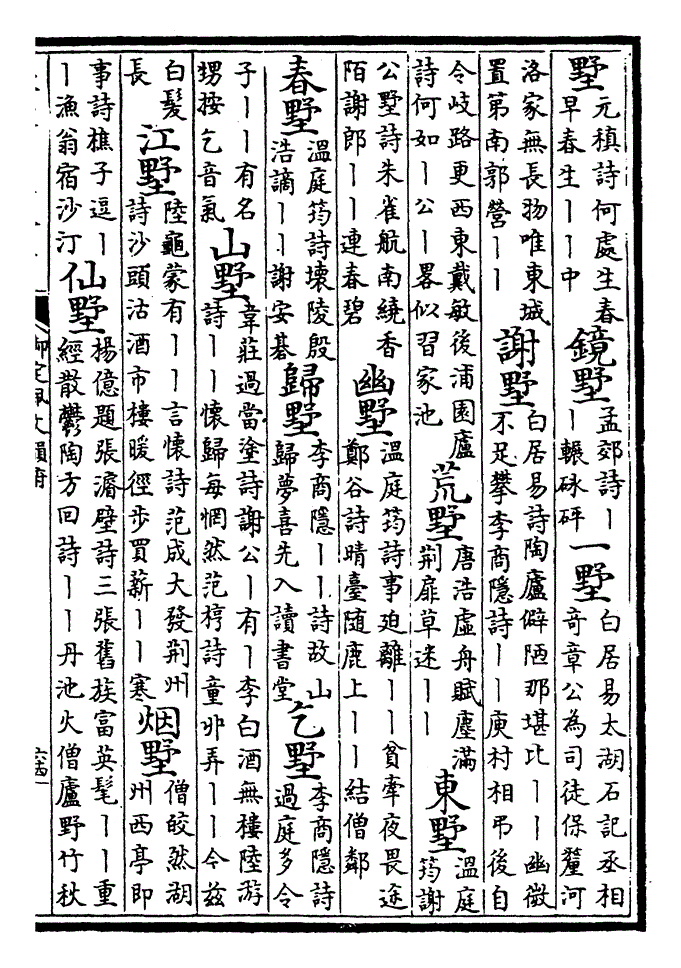 墅元稹詩何處生春早春生丨丨中鏡墅孟郊詩丨丨輾砯砰一墅白居易太湖石記丞相奇章公為司徒保釐河
洛家無長物唯東城置第南郭營丨丨謝墅白居易詩陶廬僻陋那堪比丨丨幽微不足攀李商隱詩丨丨庾村相弔後自
令岐路更西東戴敏後浦園廬詩何如丨公丨畧似習家池荒墅唐浩虛舟賦塵滿荆扉草迷丨丨東墅溫庭筠謝
公墅詩朱雀航南繞香陌謝郎丨丨連春碧幽墅溫庭筠詩事迫離丨丨貧牽夜畏途鄭谷詩晴臺随鹿上丨丨結僧鄰
春墅溫庭筠詩壊陵殷浩謫丨丨謝安碁歸墅李商隱丨丨詩故山歸夢喜先入讀書堂乞墅李商隱詩過庭多令
子丨丨有名甥按乞音氣山墅韋莊過當塗詩謝公丨有丨李白酒無樓陸游詩丨丨懷歸每惘然范梈詩童丱弄丨丨今兹
白髮長江墅陸龜蒙有丨丨言懷詩范成大發荆州詩沙頭沽酒市樓暖徑步買薪丨丨寒烟墅僧皎然湖州西亭即
事詩樵子逗丨丨漁翁宿沙汀仙墅楊億題張濬壁詩三張舊族富英髦丨丨重經散鬱陶方回詩丨丨丹池火僧廬野竹秋
御定佩文韻府